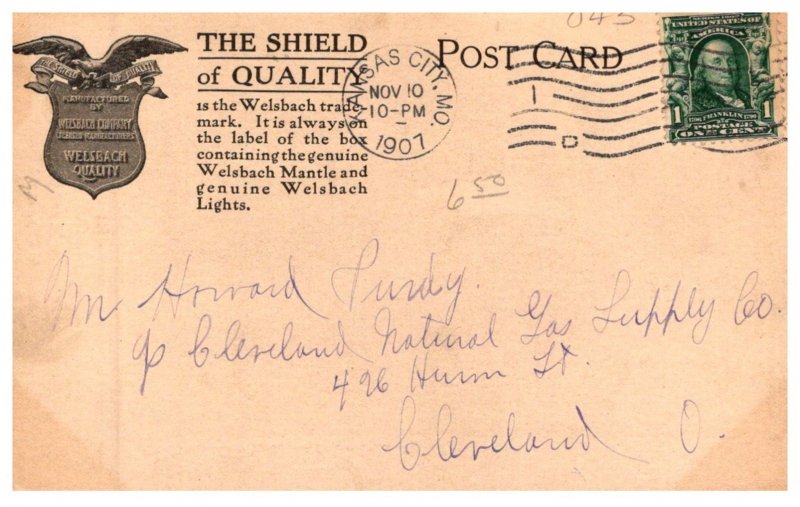 THE SHIELD OF QUALITY
MANUFACTURED
BY
WELSBACH COMPANY
WELSBACH
QUALITY
THE SHIELD
of QUALITY
is the Welsbach trade
mark. It is always on
the label of the box
containing the genuine
Welsbach Mantle and
genuine Welsbach
Lights.
KANSAS CITY, MO.
NOV 10
10-PM
1907
POST CARD
1
D
043
UNITED STATES OF
AMERICA
1 1
FRANKLIN
POSTAGE
ONE CENT
M
6 50
Mr Howard Purdy.
c/o Cleveland Natural Gas Supply Co.
426 Huron St.
Cleveland O.